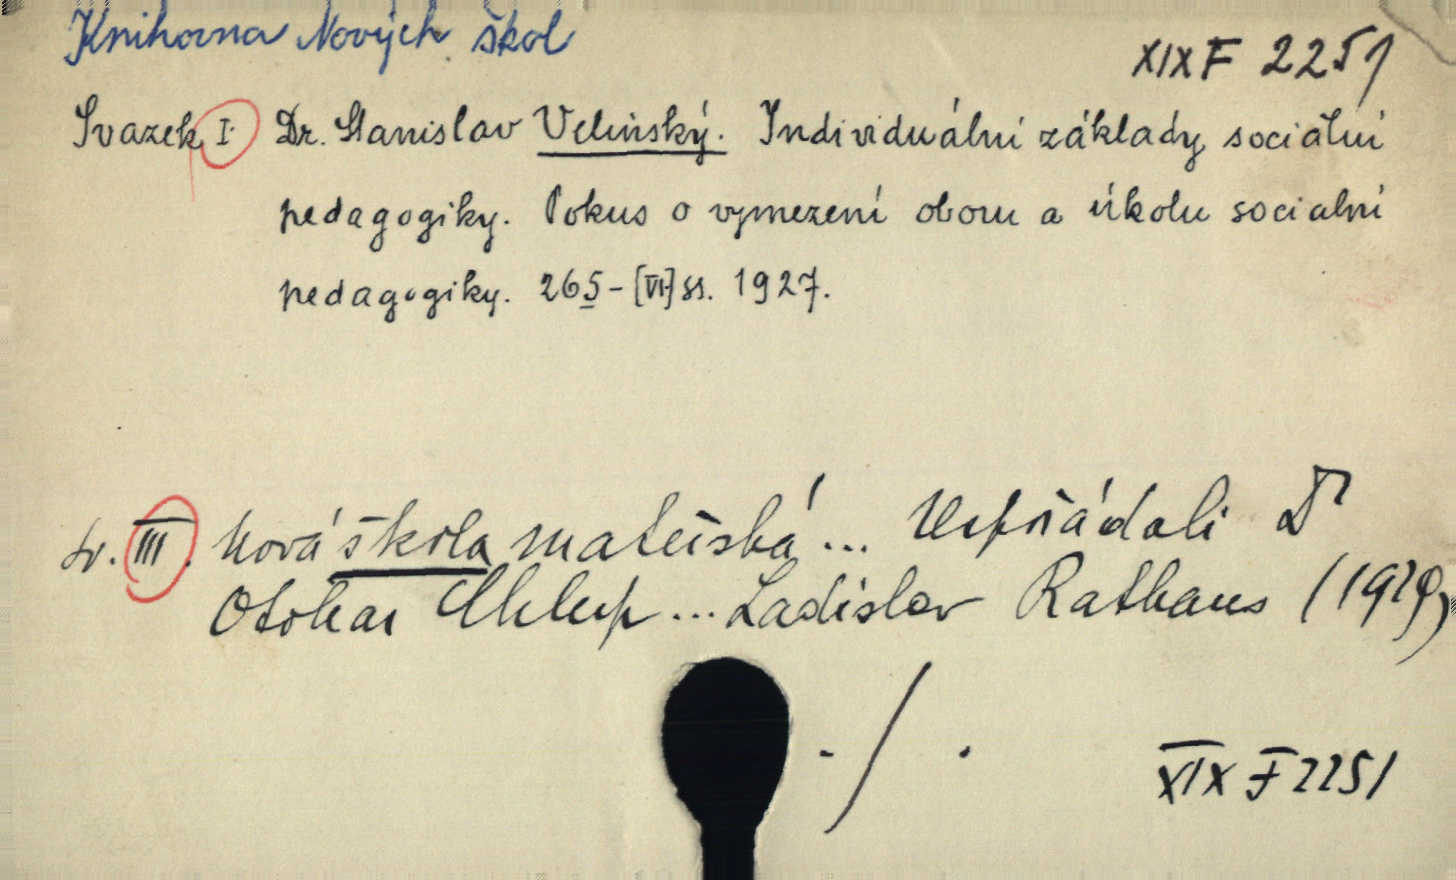 Knihovna Nových škol
XIX F 2251
Svazek I. Dr. Stanislav Velinský. Individuální základy sociální
pedagogiky. Pokus o vymezení oboru a úkolu socialní
pedagogiky. 265-[VI] ss. 1927.
Sv. III. Nová škola mateřská ... Uspořádali Dr
Otokar Chlup ... Ladislav Rathaus (1929)
- / .
XIX F 2251